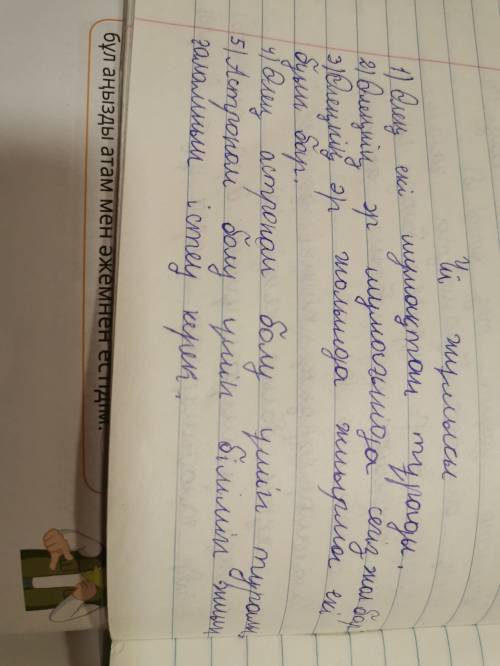 Үй жұмысы
1) Өлең екі шумақтан тұрады.
2) Өлеңнің әр шумағында сегіз жол бар
3) Өлеңнің әр жолында жиырма екі
буын бар.
4) Өлең астроном болу үшін туралы.
5) Астроном болу үшін білімін
ғаламның істеу керек.
бұл аңызды атам мен әжемнен естідім.